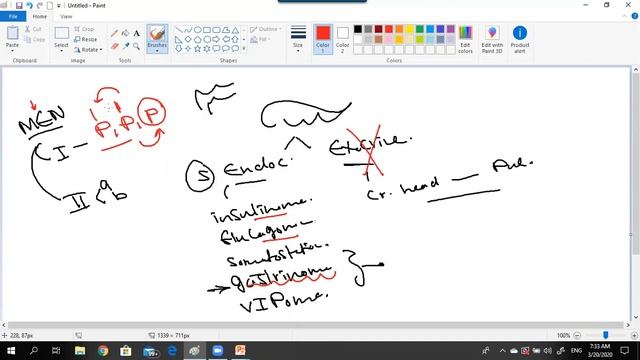 Untitled - Paint
File Home View
Paste
Cut
Copy
Clipboard
Select
Crop
Resize
Rotate
Image
Brushes
Tools
Shapes
Outline
Fill
Size
Color 1
Color 2
Colors
Edit colors
Edit with Paint 3D
Product alert
MEN
I - P, P, P
II a
b
5 Endoc. Exocrine.
insulinoma.
Glucagoma
somatostatin.
gastrinoma
VIPoma.
Cr. head
228, 87px
1339 × 711px
100%
99+
ENG
7:33 AM
3/20/2020